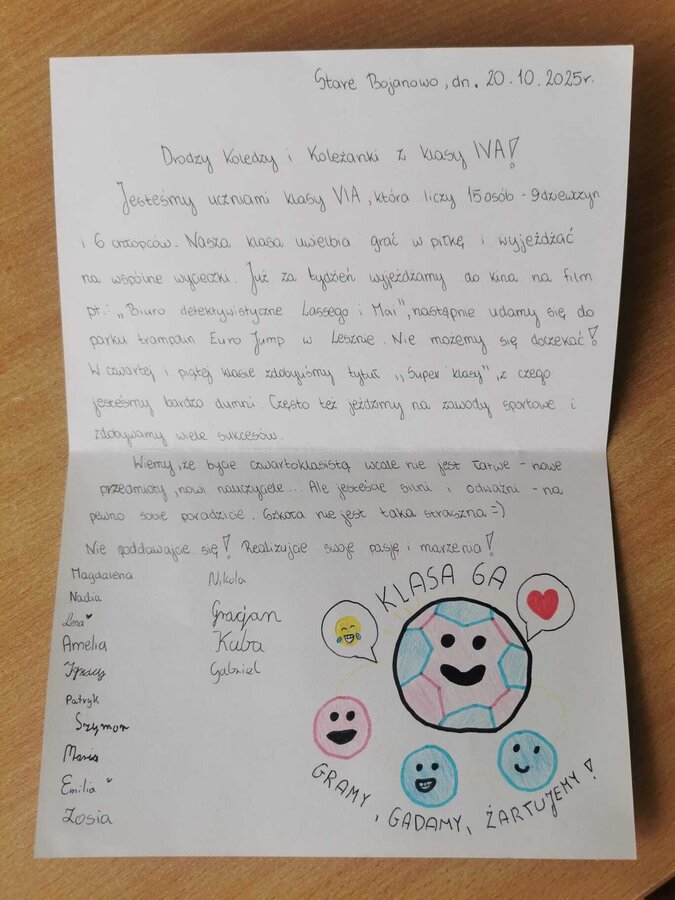 Stare Bojanowo, dn. 20.10.2025r.
Drodzy Koledzy i Koleżanki z klasy IVA!
Jesteśmy uczniami klasy VIA, która liczy 15 osób - 9 dziewczyn
i 6 chłopców. Nasza klasa uwielbia grać w piłkę i wyjeżdżać
na wspólne wycieczki. Już za tydzień wyjeżdżamy do kina na film
pt.: „Biuro detektywistyczne Lassego i Mai", następnie udamy się do
parku trampolin Euro Jump w Lesznie. Nie możemy się doczekać!
W czwartej i piątej klasie zdobyliśmy tytuł „Super klasy", z czego
jesteśmy bardzo dumni. Często też jeździmy na zawody sportowe i
zdobywamy wiele sukcesów.
Wiemy, że bycie czwartoklasistą wcale nie jest łatwe - nowe
przedmioty, nowi nauczyciele... Ale jesteście silni i odważni - na
pewno sobie poradzicie. Szkoła nie jest taka straszna =)
Nie poddawajcie się! Realizujcie swoje pasje i marzenia!
Magdalena
Nadia
Lena
Amelia
Ignacy
Patryk
Szymon
Maria
Emilia
Zosia
Nikola
Gracjan
Kuba
Gabriel
KLASA 6A
GRAMY, GADAMY, ŻARTUJEMY!